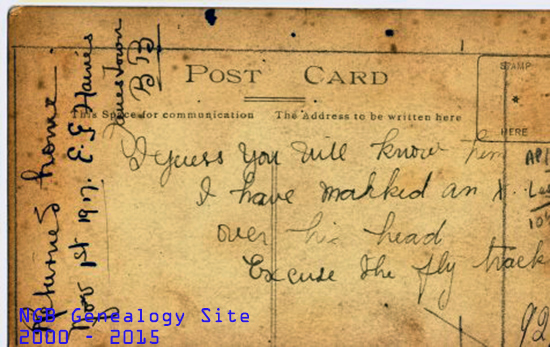 POST CARD
This Space for communication
The Address to be written here
STAMP
HERE
I guess you will know him
I have markked an X
over his head
Excuse the fly track
Returned home
Nov 1st 1917. E. G Haines
Jamestown
BB
92
NGB Genealogy Site
2000 - 2015